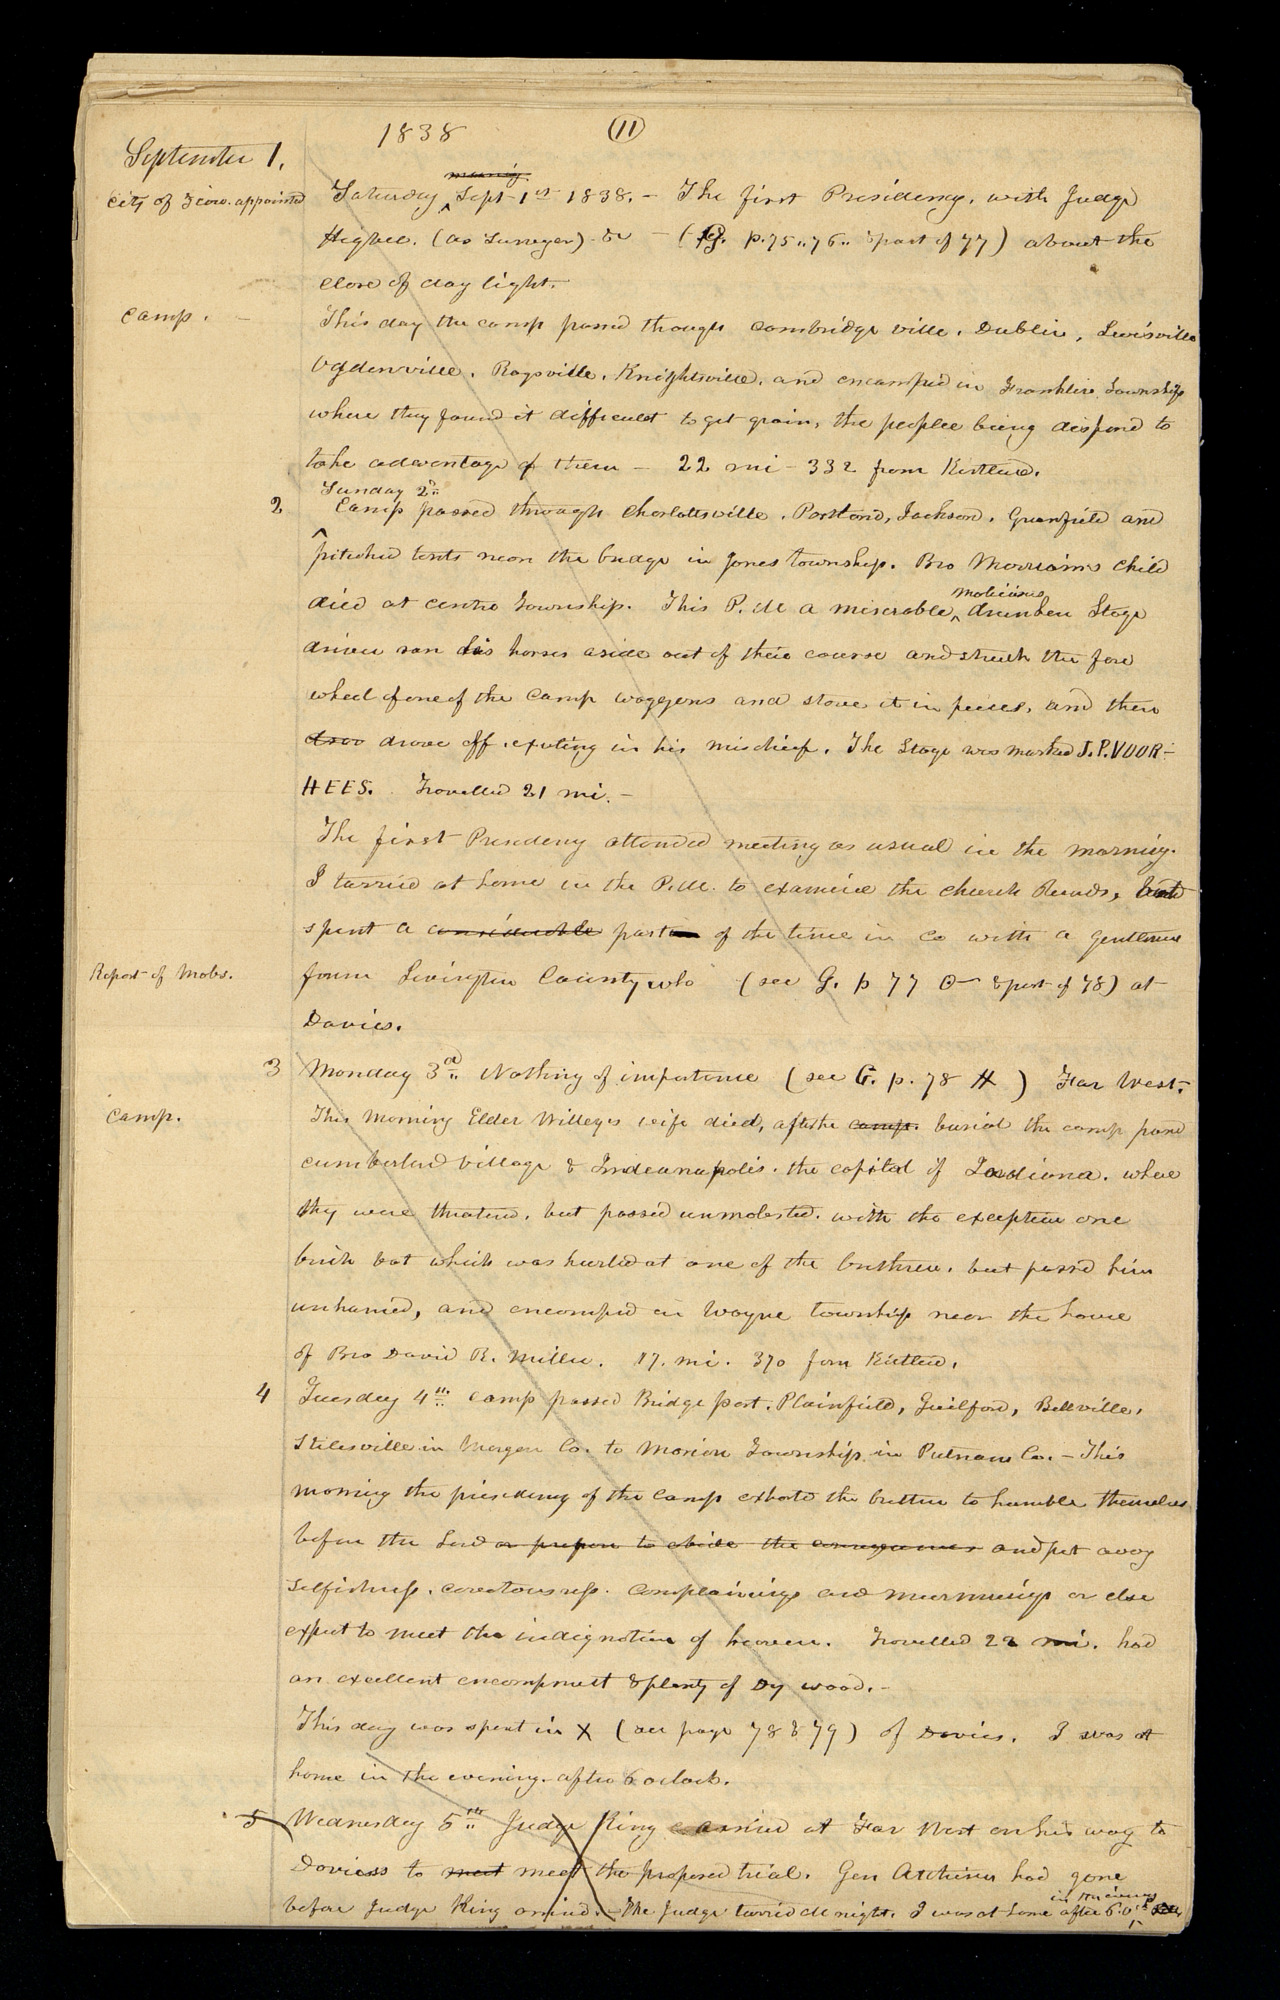 1838
(11)
September 1.
City of Zion. appointed
Saturday morning Sept 1st 1838. – The first Presidency, with Judge
Higbee, (as Surveyor) &c – (G. p. 75 .. 76 .. & part of 77) about the
close of day light.
Camp.
This day the camp passed through Cambridge ville, Dublin, Lewisville
Ogdenville, Raysville, Knightsville, and encamped in Franklin Township
where they found it difficult to get grain, the people being disposed to
take advantage of them – 22 mi – 332 from Kirtland.
Sunday 2d
2 Camp passed through Charlottsville, Portland, Jackson, Greenfield and
pitched tents near the bridge in Jones township. Bro Merriams child
died at Centre Township. This P. M a miserable, malicious drunken Stage
driver ran his horses aside out of their course and struck the fore
wheel of one of the camp waggons and stove it in pieces, and then
drove off exulting in his mischief. The Stage was marked J. P. VOOR-
HEES. Travelled 21 mi. –
The first Presidency attended meeting as usual in the morning.
I tarried at home in the P.M. to examine the church Records, and
spent a considerable part of the time in Co with a gentleman
Report of Mobs.
from Livingston County who (see G. p 77 & part of 78) at
Davies.
3 Monday 3d Nothing of importance (see G. p. 78 H ) Far West.
Camp.
This morning Elder Willeys wife died, after the camp. burial the camp passed
Cumberland village & Indeanapolis. the capital of Indiana. where
they were threatened, but passed unmolested. with the exception one
brick bat which was hurled at one of the brethren, but passed him
unharmed, and encamped in Wayne township near the house
of Bro David R. Miller. 17. mi. 370 from Kirtland.
4 Tuesday 4th camp passed Bridge port, Plainfield, Guilford, Bellville,
Stilesville in Morgan Co. to Marion Township in Putnam Co. – This
morning the presidency of the camp exhorted the brethren to humble themselves
before the Lord or prepare to abide the consequences and put away
selfishness, covetousness, complainings and murmurings or else
expect to meet the indignation of heaven. Travelled 22 mi. had
an excellent encampment & plenty of Dry wood. –
This day was spent in X (see page 78 & 79) of Davies. I was at
home in the evening after 6 oclock.
5 Wednesday 5th Judge King arrived at Far West on his way to
Daviess to meet meet the proposed trial. Gen Atchison had gone
before Judge King arrived. – The Judge tarried all night. I was at home after 6 o'
in the evening